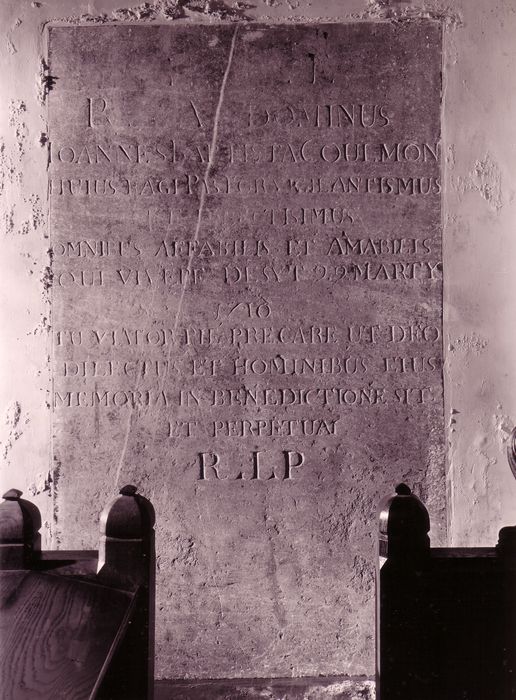 R A DOMINUS
IOANNES BAPTISTA COULMON
HUIUS PAGI PASTOR VIGILANTISMUS
ET
OMNIBUS AFFABILIS ET AMABILIS
QUI VIVERE DESYT 99 MARTY
TU VIATOR PRECARE UT DEO
DILECTUS ET HOMINIBUS EIUS
MEMORIA IN BENEDICTIONE SIT
ET PERPETUAI
R.I.P